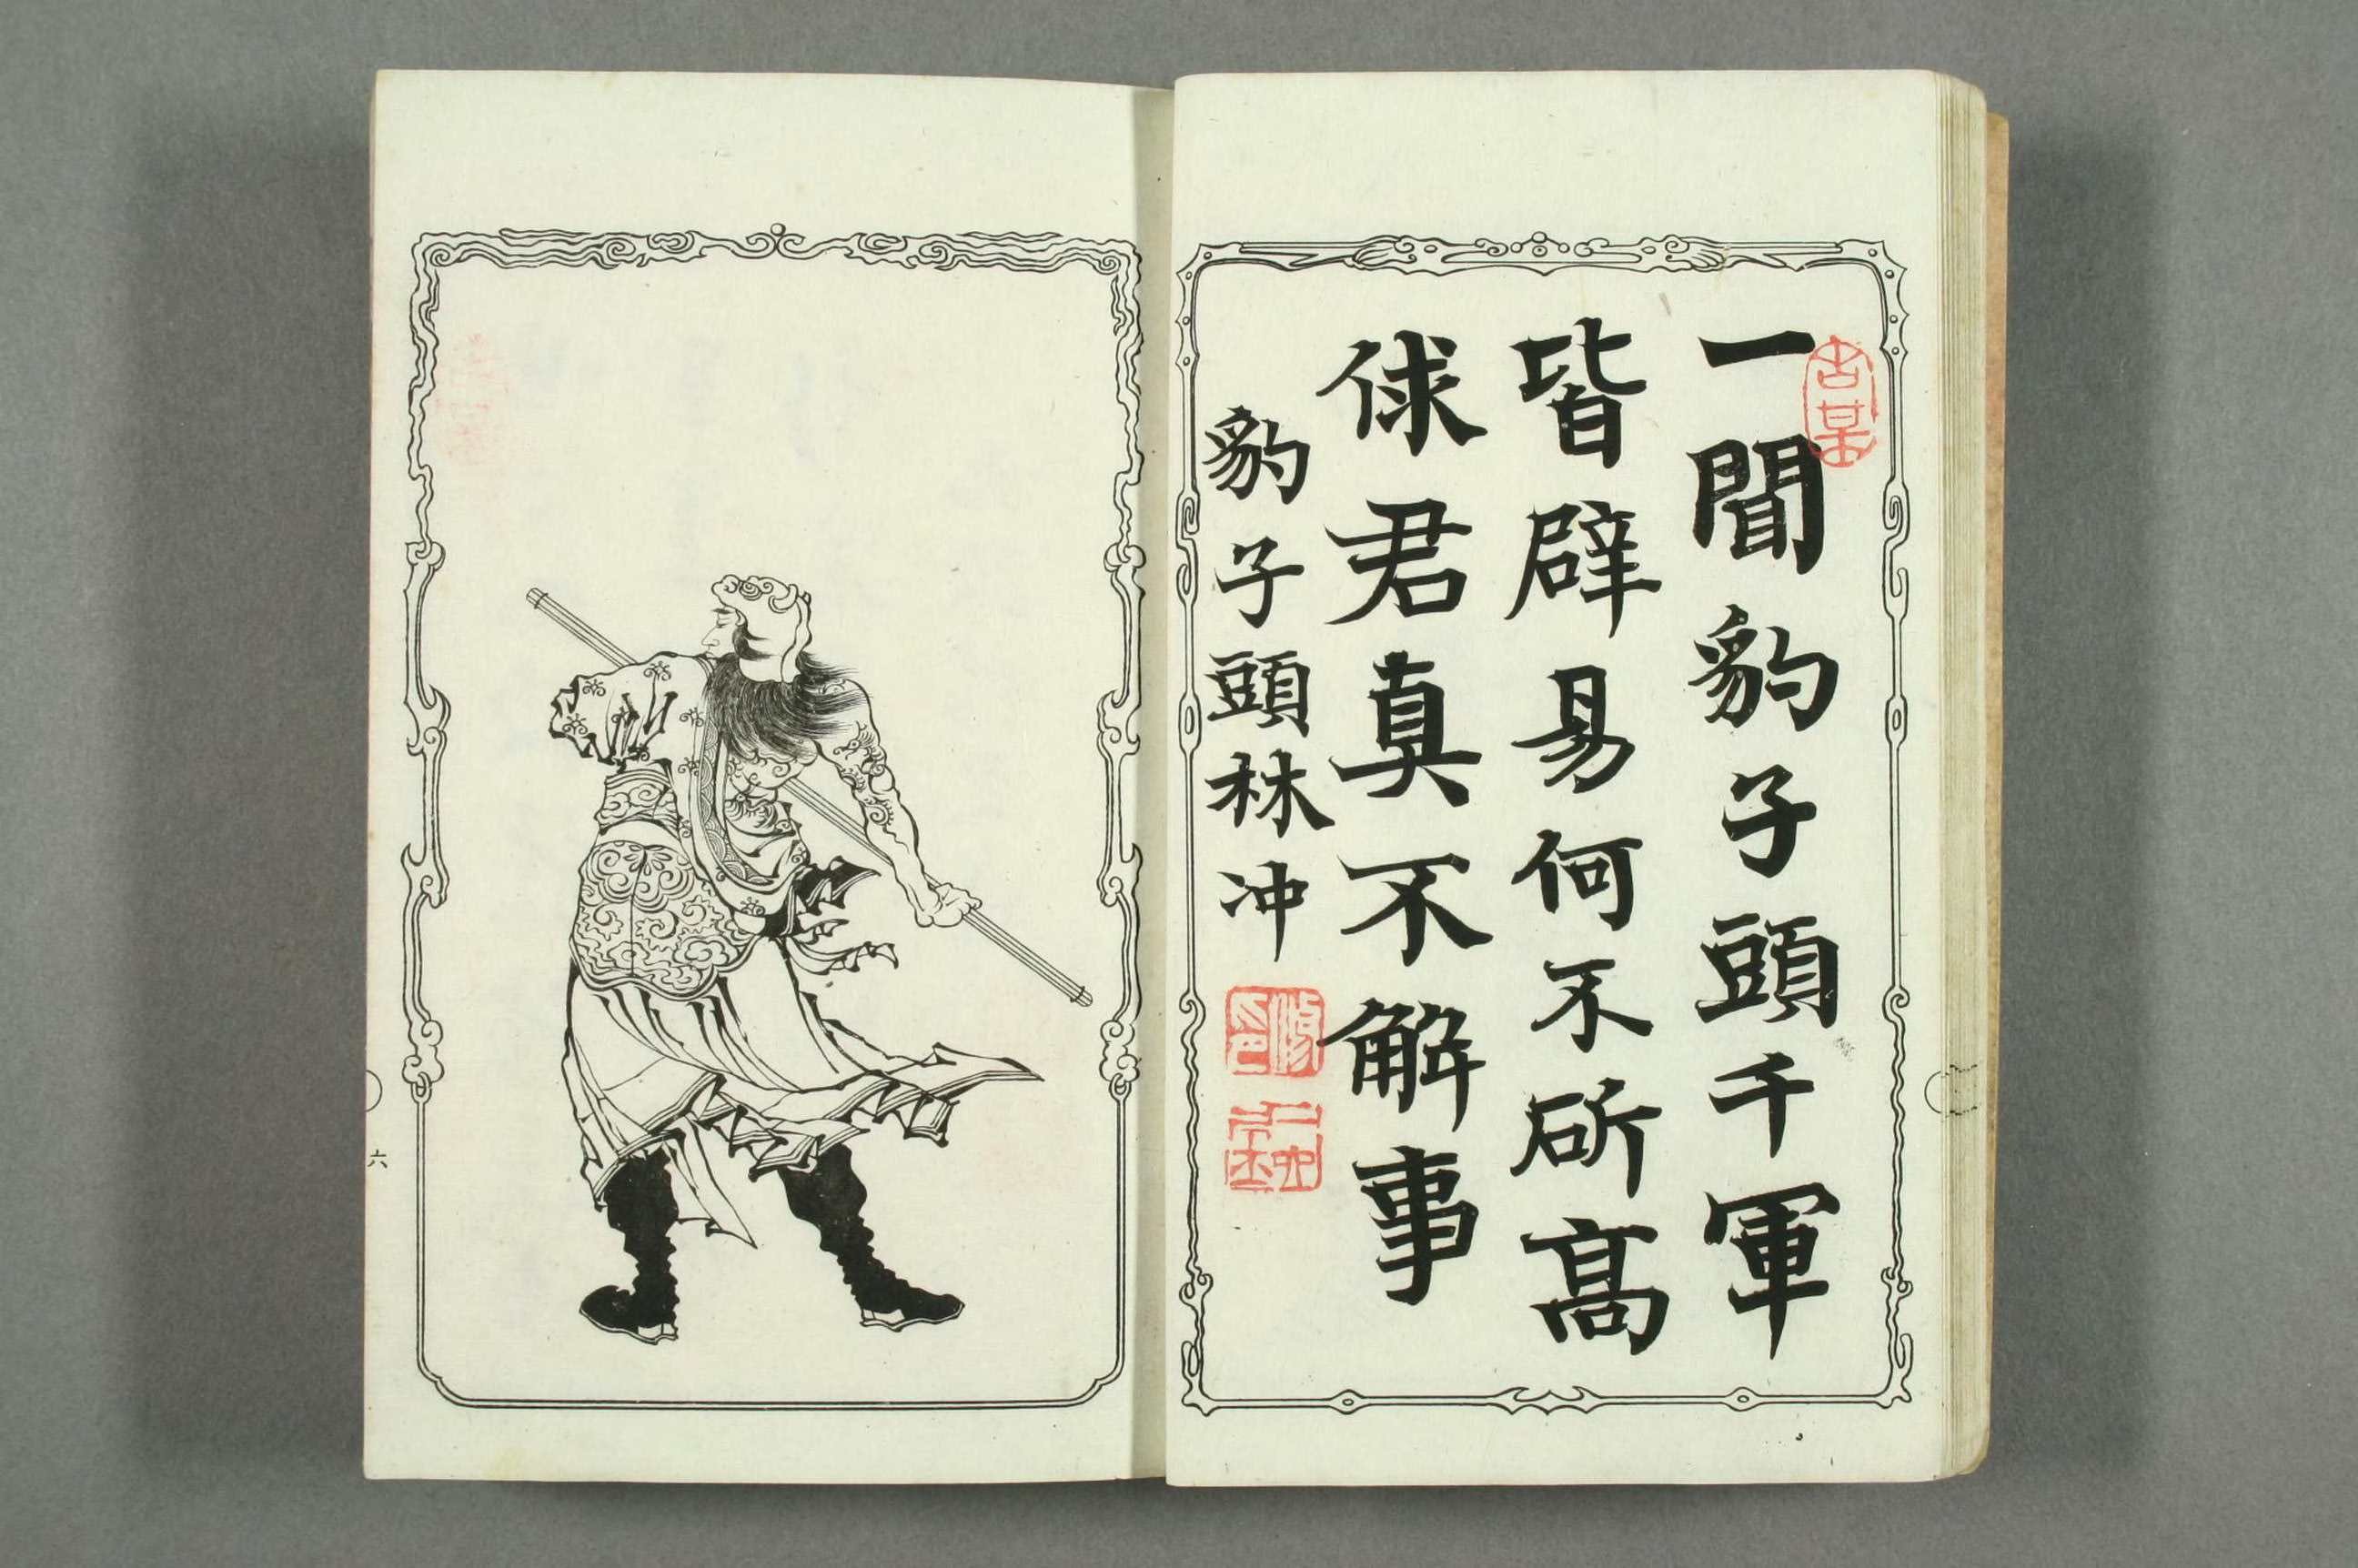 一聞豹子頭千軍
皆辟易何不斫髙
俅君真不解事
豹子頭林冲
六